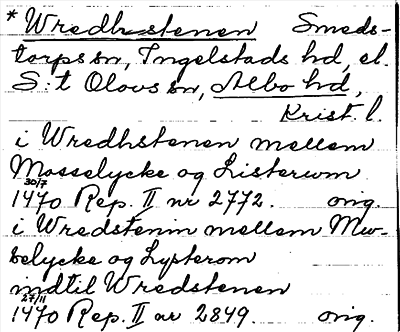 * Wredhstenen Smeds-
torps sn, Ingelstads hd, el.
S:t Olovs sn, Albo hd,
Krist. l.
i Wredhstenen mellem
Mosselycke og Listerum
30/7
1470 Rep. II nr 2772. orig.
i Wredstenin mellem Mw-
selycke og Lysterom
indtil Wredstenen
27/11
1470 Rep. II nr 2849. orig.